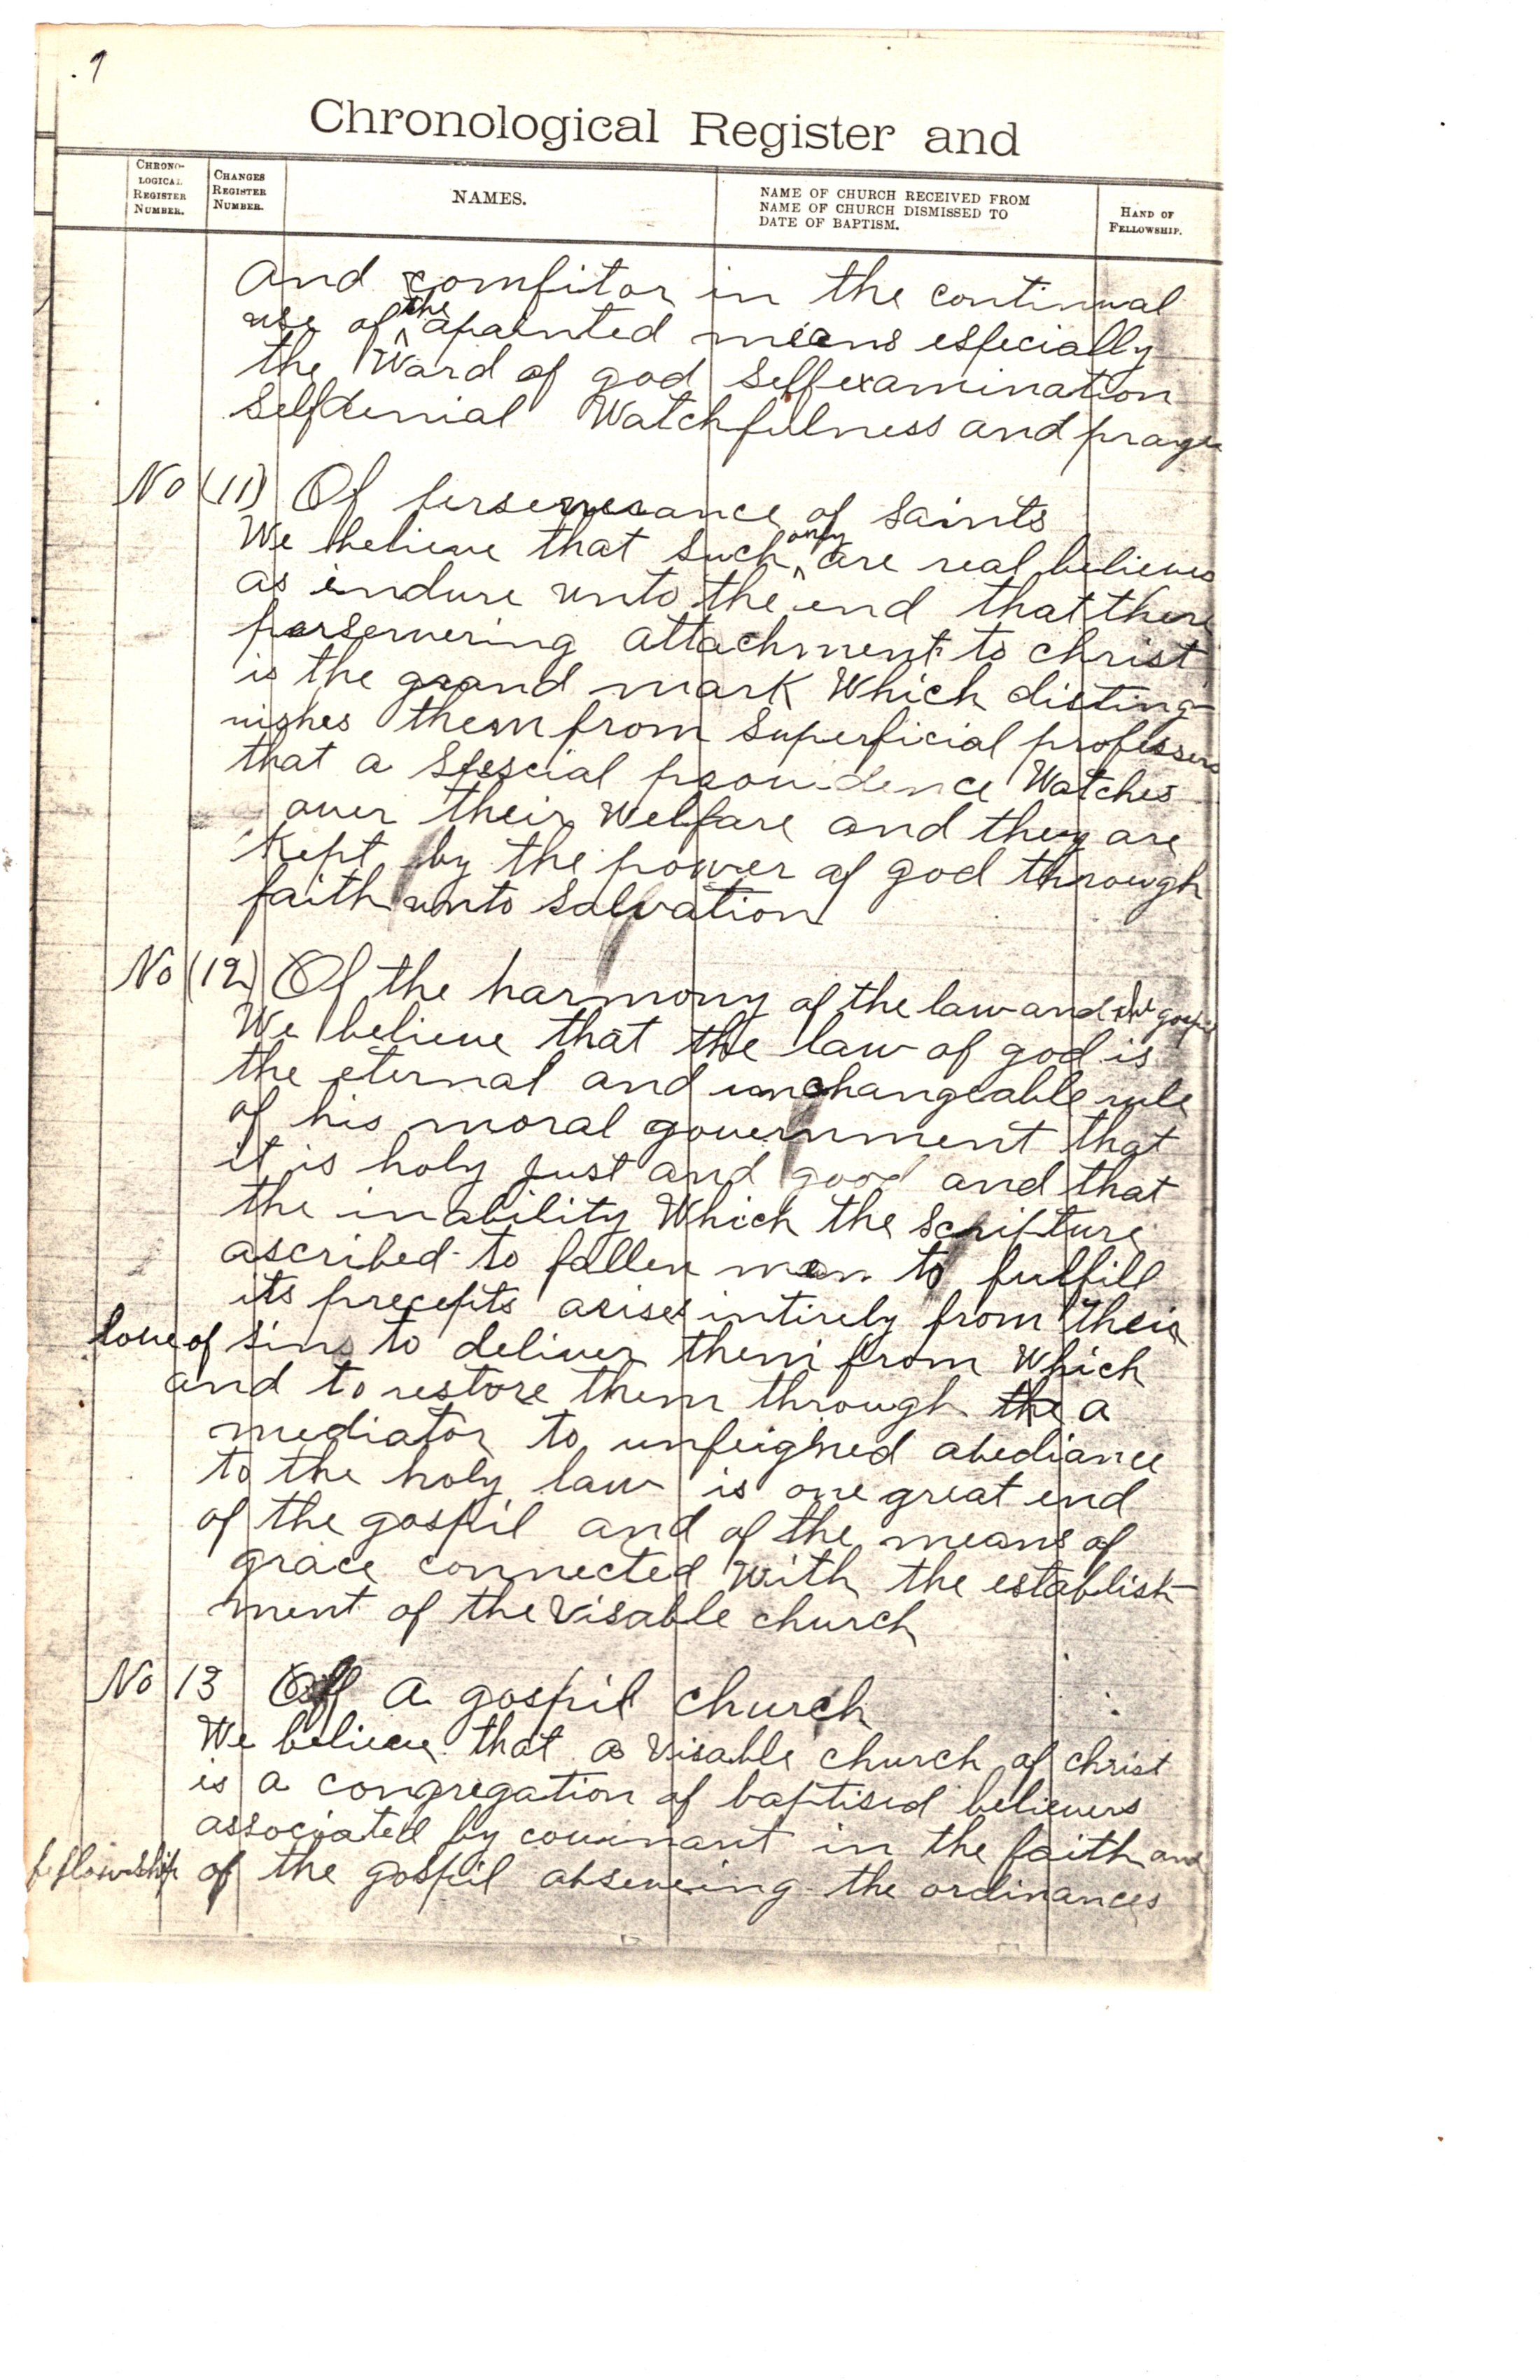 .9
Chronological Register and
CHRONO-
LOGICAL
REGISTER
NUMBER.
CHANGES
REGISTER
NUMBER.
NAMES.
NAME OF CHURCH RECEIVED FROM
NAME OF CHURCH DISMISSED TO
DATE OF BAPTISM.
HAND OF
FELLOWSHIP.
and comfitor in the continual
use of the apainted means especially
the Ward of god selfexamination
Selfdenial Watchfulness and prayer
No (11) Of perseverance of saints
We believe that such only are real believes
as indure unto the end that there
perservering attachment to christ
is the grand mark Which disting-
uishes them from superficial professers
that a spescial providence Watches
over their Welfare and they are
Kept by the power of god through
faith unto salvation
No (12) Of the harmony of the law and the gospil
We believe that the law of god is
the eternal and unchangeable rule
of his moral government that
it is holy just and good and that
the inability Which the scripture
ascribed to fallen man to fulfill
its precepts arises intirely from their
love of sin to deliver them from Which
and to restore them through the a
mediator to unfeighned abediance
to the holy law is one great end
of the gospil and of the means of
grace connected With the establish-
ment of the visable church
No 13 Of a gospil church
We believe that a visable church of christ
is a congregation of baptised believers
associated by covinant in the faith and
fellowship of the gospil abserveing the ordinances